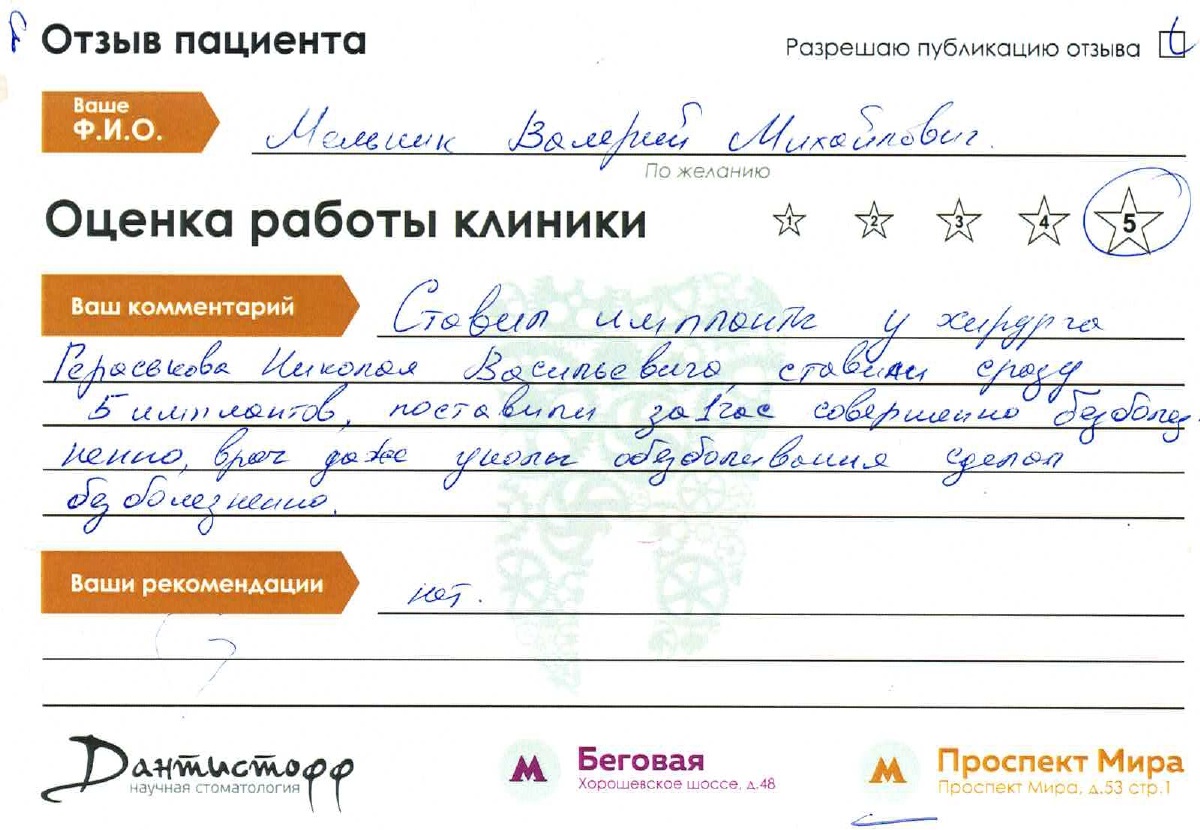 Отзыв пациента
Разрешаю публикацию отзыва
Ваше
Ф.И.О.
Мельник Валерий Михайлович.
По желанию
Оценка работы клиники
1 2 3 4 5
Ваш комментарий
Ставил импланты у хирурга
Гераськова Николая Васильевича, ставили сразу
5 имплантов, поставили за 1 час совершенно безболез
ненно, врач даже уколы обезболивания сделал
безболезненно.
Ваши рекомендации
нет.
Дантистофф
научная стоматология
М Беговая
Хорошевское шоссе, д.48
М Проспект Мира
Проспект Мира, д.53 стр.1